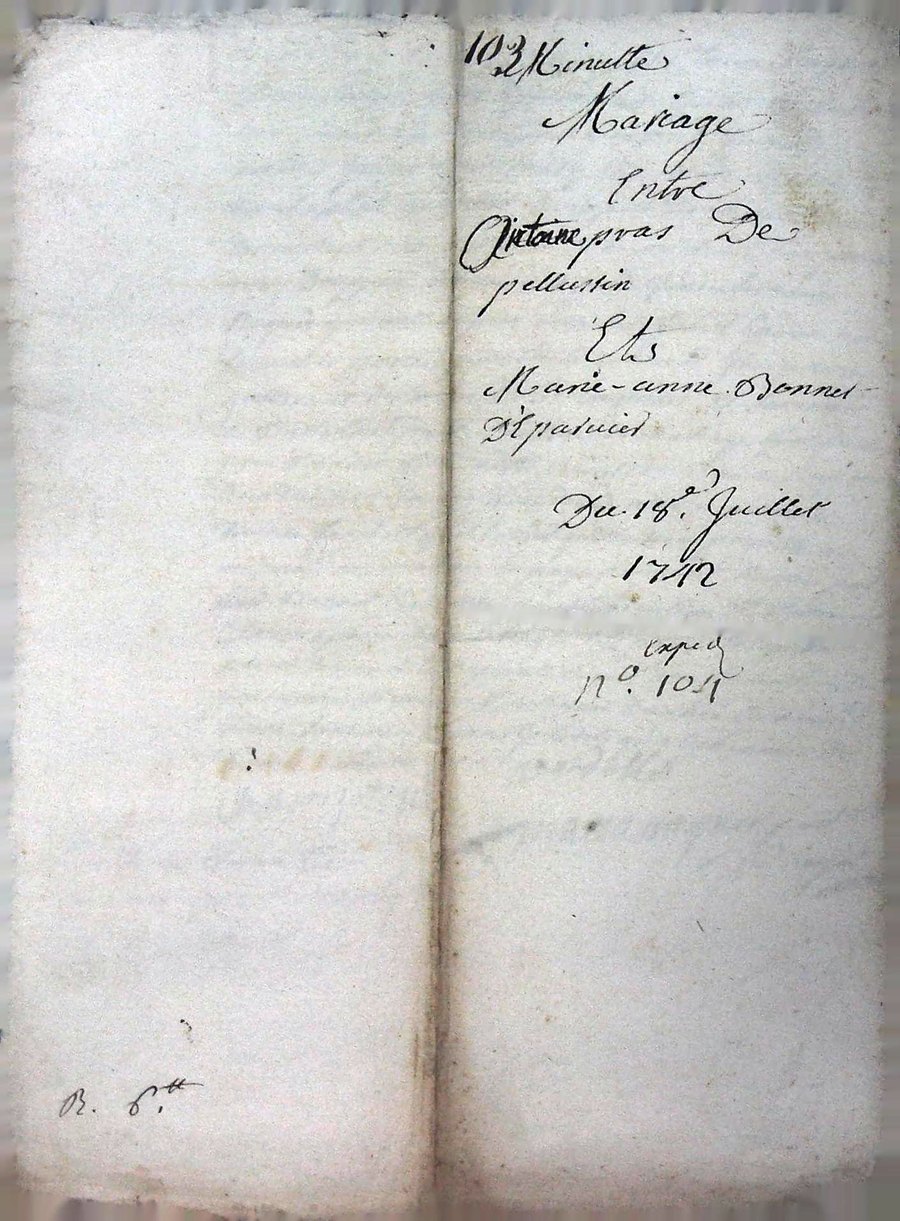 103 Minutte
Mariage
Entre
Antoine pras De
pellussin
Et
Marie-anne Bonnet
D'Eparcieu
Du 18e. Juillet
1742
exped
n°. 104
R. 6.tt